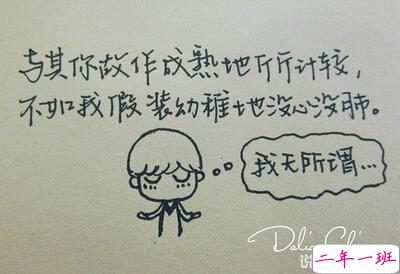 与其你故作成熟地斤斤计较，
不如我假装幼稚地没心没肺。
我无所谓...
二年一班